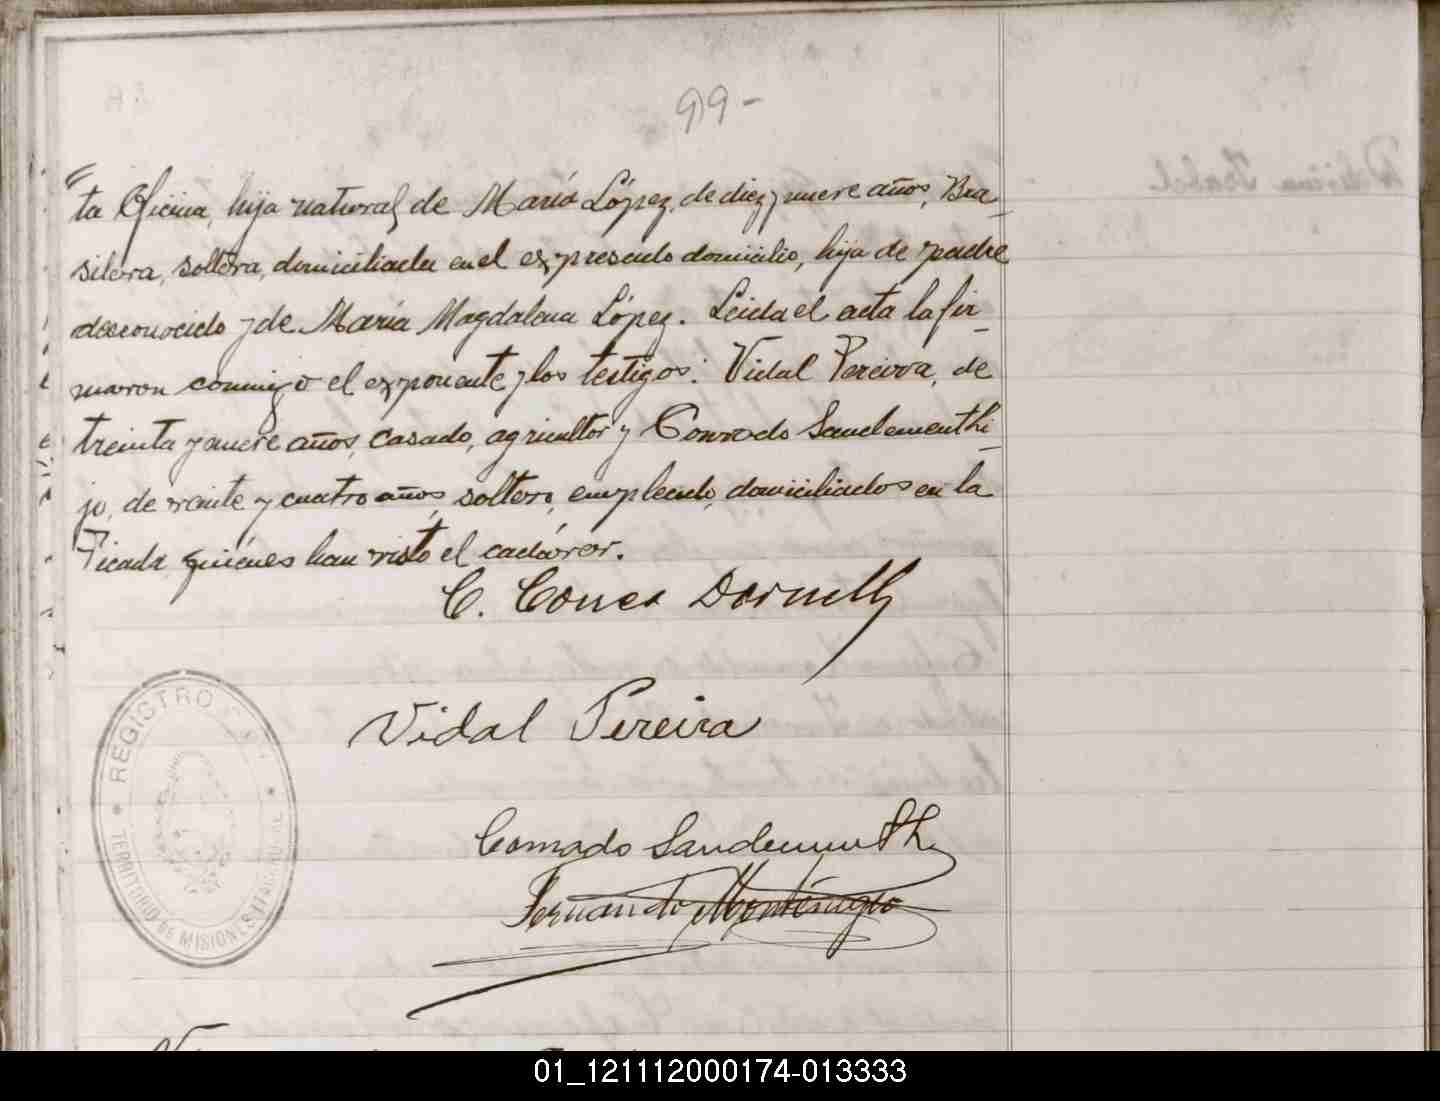 99-
"ta Oficina, hija natural de María López, de diez y nueve años, Bra_
silera, soltera, domiciliada en el expresado domicilio, hija de padre
desconocido y de María Magdalena López. Leida el acta la fir_
maron conmigo el exponente y los testigos: Vidal Pereira, de
treinta y nueve años, casado, agricultor y Conrado Sandementhi_
jo, de veinte y cuatro años, soltero, empleado, domiciliados en la
Picada quiénes han visto el cadáver.
C. Correa
Vidal Pereira
Conrado
Fernando Montenegro
REGISTRO
TERRITORIO DE MISIONES
01_121112000174-013333